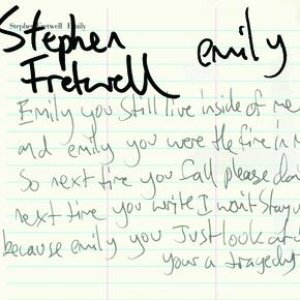 Stephen Fretwell Emily
Stephen
Fretwell
emily
Emily you still live inside of me
and emily you were the fire in m
So next time you fall please don
next time you write I won't stay u
because emily you Just look at
your a tragedy